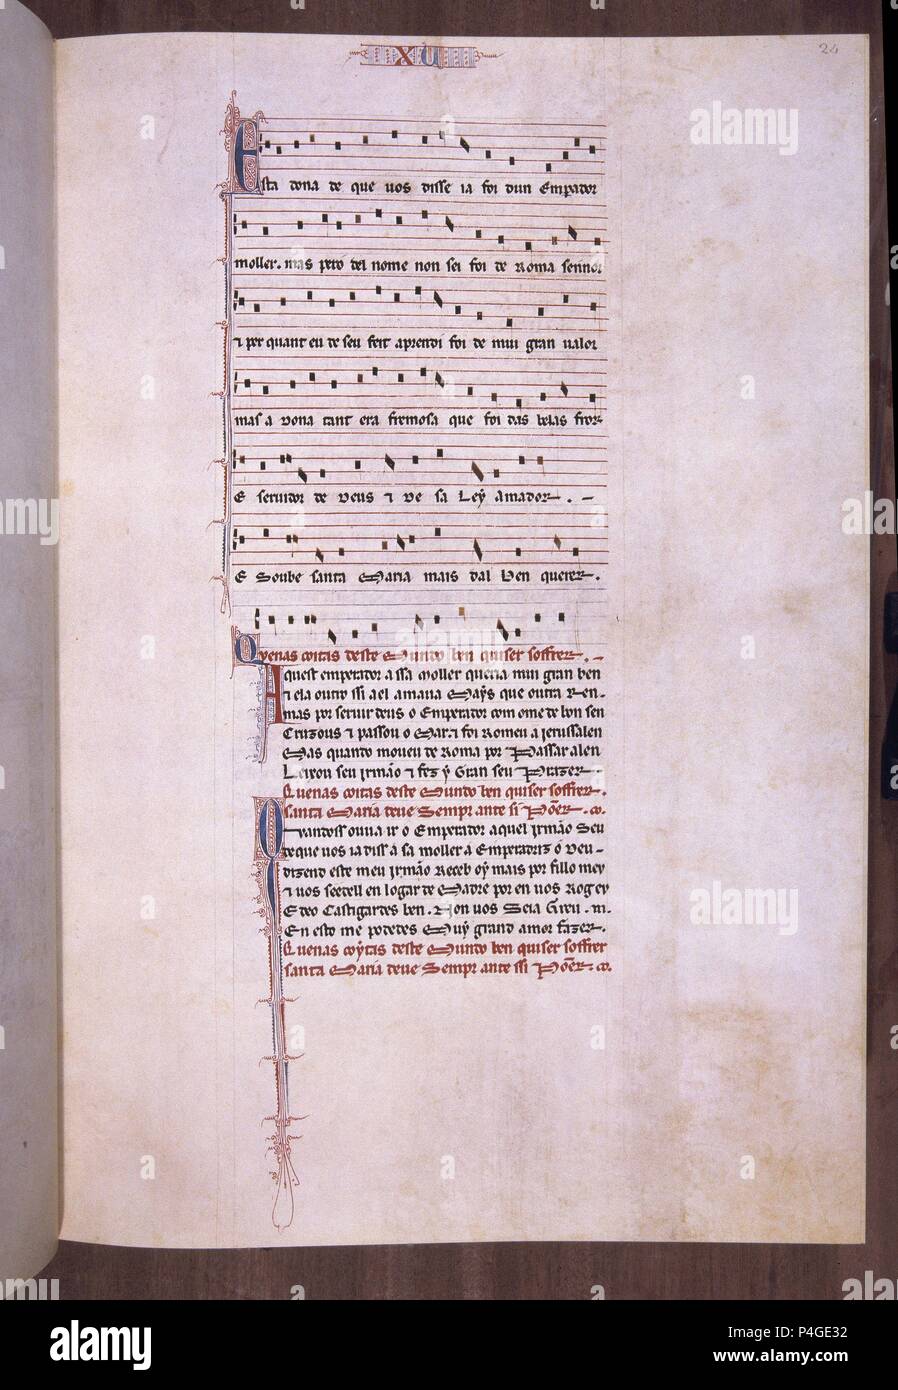 XU
24
Esta dona de que uos disse ia foi dun Emperador
moller. mas pero del nome non sei foi de Roma sennor
⁊ per quant eu de seu feit aprendi foi de mui gran ualor
mas a dona tant era fremosa que foi das belas fror
E seruidor de deus ⁊ de sa Ley Amador. –
E Soube santa Maria mais dal ben querer.
Quenas coitas deste Mundo ben quiser soffrer. –
Aquest emperador a ssa moller queria mui gran ben
⁊ ela outro ssi a el amaua Mays que outra Ren.
mas por seruir deus o Emperador com ome de bon sen
Cruzous ⁊ passou o Mar ⁊ foi Romeu a ierussalen
Mas quando moueu de Roma por Passar alen
Leixou seu irmão ⁊ fez y Gran seu Prazer
Quenas coitas deste Mundo ben quiser soffrer.
santa Maria deue Sempr ante si Põer. co.
Quandoss ouua ir o Emperador aquel irmão Seu
de que uos ia diss a sa moller a Emperadriz o deu –
dizend este meu irmão Receb oy mais por fillo mey
⁊ uos seedell en logar de Madre por en uos Rogey
E deo Castigardes ben. Non uos Seia Greu. m.
En esto me podedes Muy grand amor fazer.
Quenas coytas deste Mundo ben quiser soffrer
santa Maria deue Sempr ante ssi Põer. co.
alamy
alamy
Image ID: P4GE32
www.alamy.com